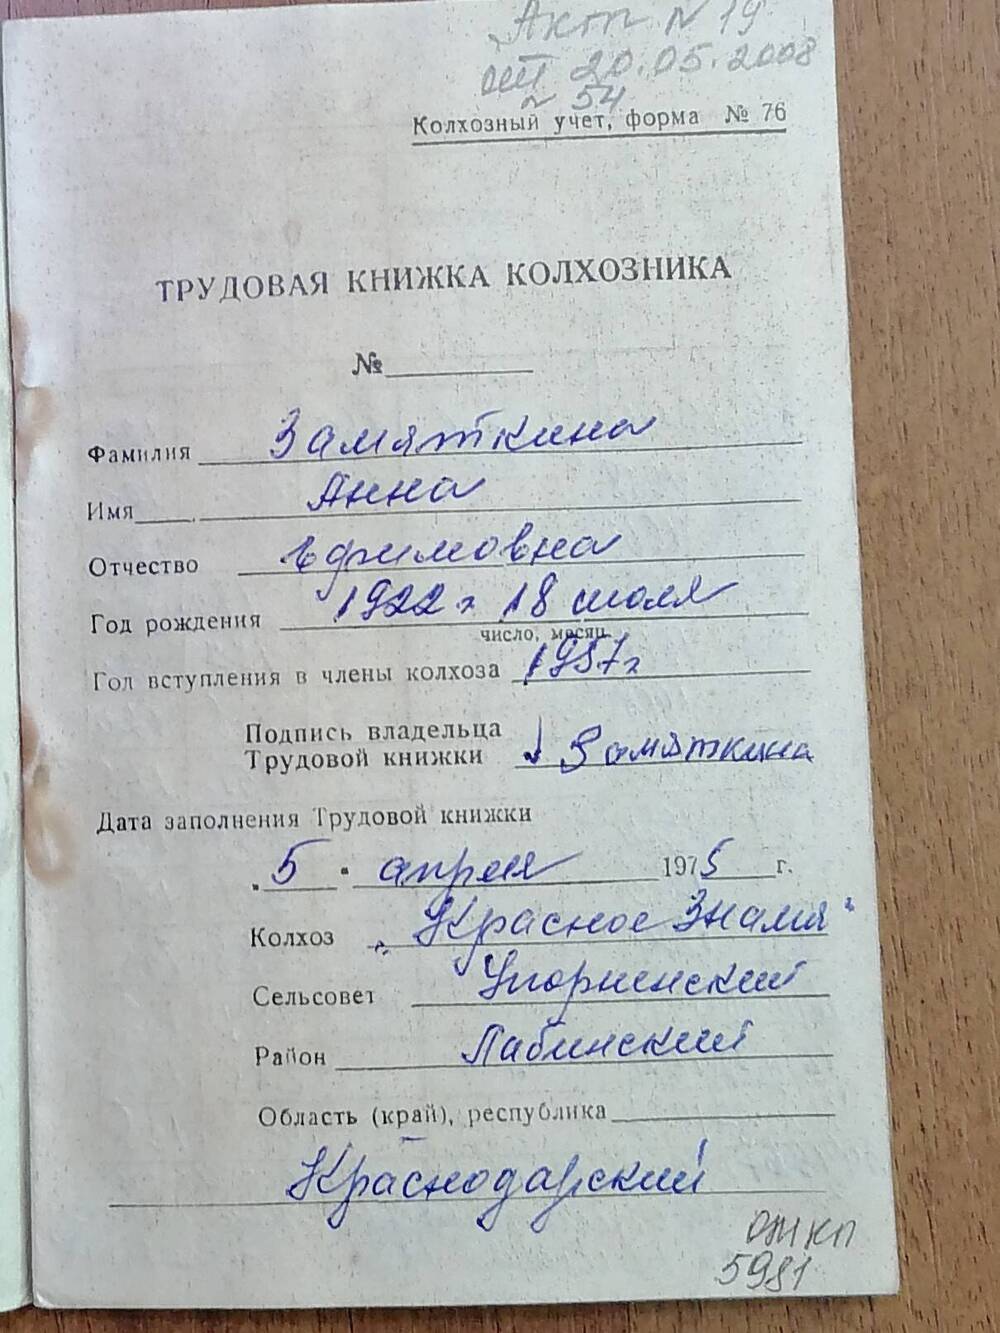 Акт N 19
от 20.05.2008
№ 54
Колхозный учет, форма № 76
ТРУДОВАЯ КНИЖКА КОЛХОЗНИКА
№
Фамилия Замяткина
Имя Анна
Отчество Ефимовна
Год рождения 1922 г 18 июля
число, месяц
Год вступления в члены колхоза 1957 г
Подпись владельца
Трудовой книжки Замяткина
Дата заполнения Трудовой книжки
"5" апреля 1975 г.
Колхоз "Красное Знамя"
Сельсовет Упорненский
Район Лабинский
Область (край), республика
Краснодарский
ОЖКП
5981